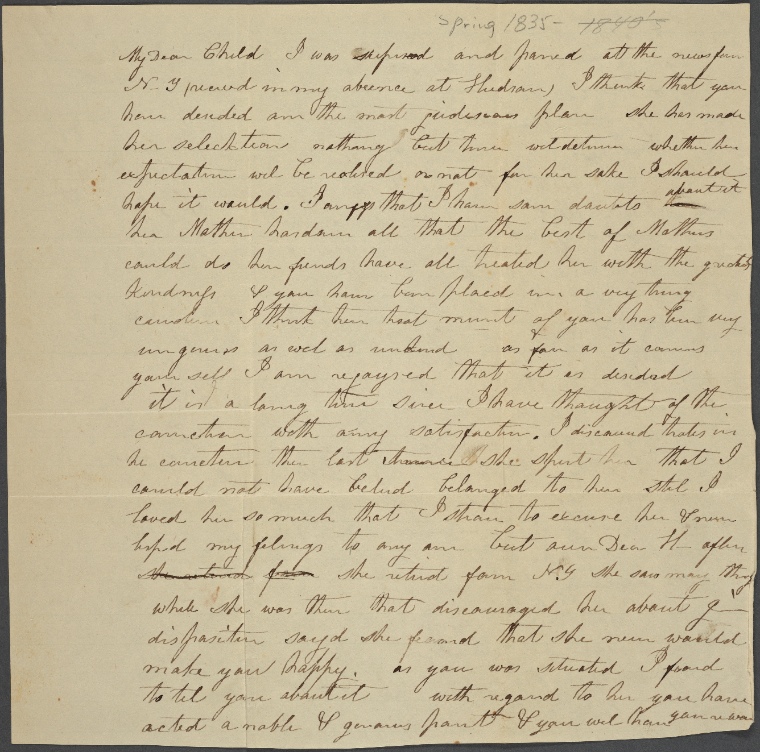 Spring 1835 - 1840's
My Dear Child I was suprised and paned at the news from
N-Y (recevd in my absence at Hudson) I think that you
have desided on the most judisous plan she has made
her selecktion nothing but time wil detirmin whether her
expectation wil be realised or not for her sake I should
hope it would. I that I have som doubts about it
her Mother has don all that the best of Mothers
could do her friends have all treated her with the gratest
kindness & you have ben placed in a very trying
I think her treat ment of you has ben very
ungenrus as wel as unkind as far as it conserns
your self I am regoysed that it is desided
it is a long time sinse I have thought of the
conection with any satisfaction. I discovrd traits in
he conection the last she spent her that I
could not have belevd belonged to her stil I
loved her so much that I strove to excuse her & never
my felings to any one but our Dear H after
she returnd from she returd from N.Y she saw many things
while she was ther that discouraged her about G-
dispositin sayd she feard that she never would
make you happy. as you was situated I feard
to tel you about it with regard to her you have
acted a noble & generous part & you wil have your reward